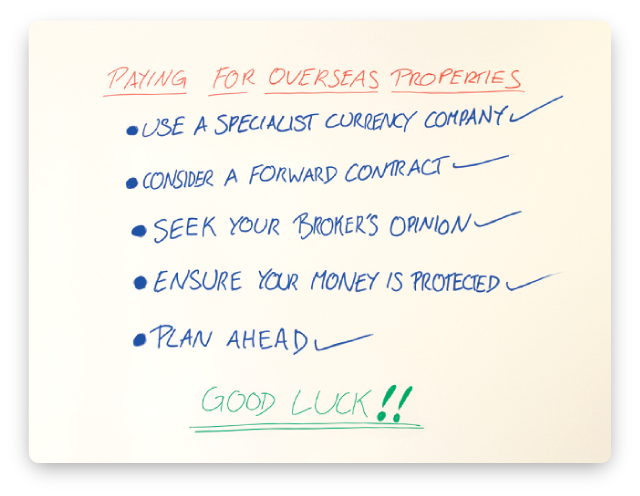 PAYING FOR OVERSEAS PROPERTIES
• USE A SPECIALIST CURRENCY COMPANY ✓
• CONSIDER A FORWARD CONTRACT ✓
• SEEK YOUR BROKER'S OPINION ✓
• ENSURE YOUR MONEY IS PROTECTED ✓
• PLAN AHEAD ✓
GOOD LUCK!!